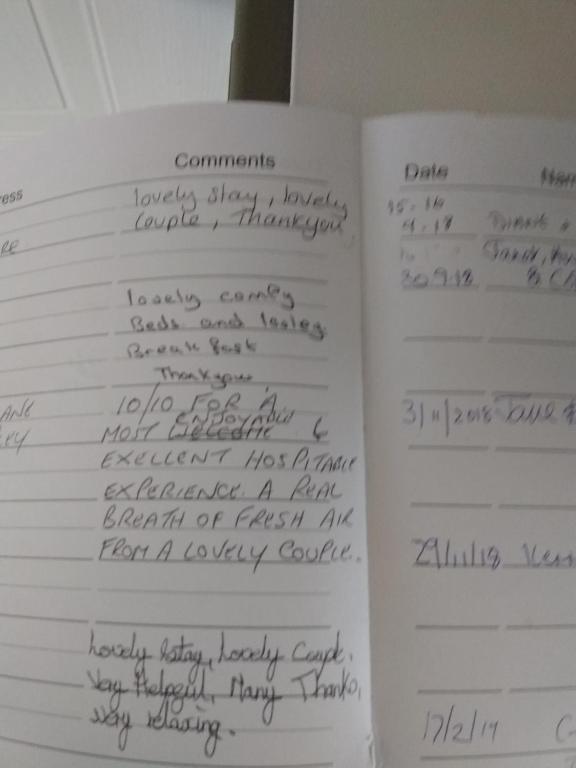 ress
Comments
lovely Stay, lovely
Couple, Thankyou,
RE
lovely comfy
Beds and
Break fast
Thankyou
10/10 FOR A
ENJOYABLE
MOST Welcome &
EXELLENT HOSPITABLE
EXPERIENCE. A REAL
BREATH OF FRESH AIR
FROM A LOVELY COUPLE.
Lovely Stay, Lovely Couple.
Very Helpful, Many Thanks,
Very relaxing.
Date
9.18
30.9.18
31/11/2018 Jane
29/11/18
17/2/19